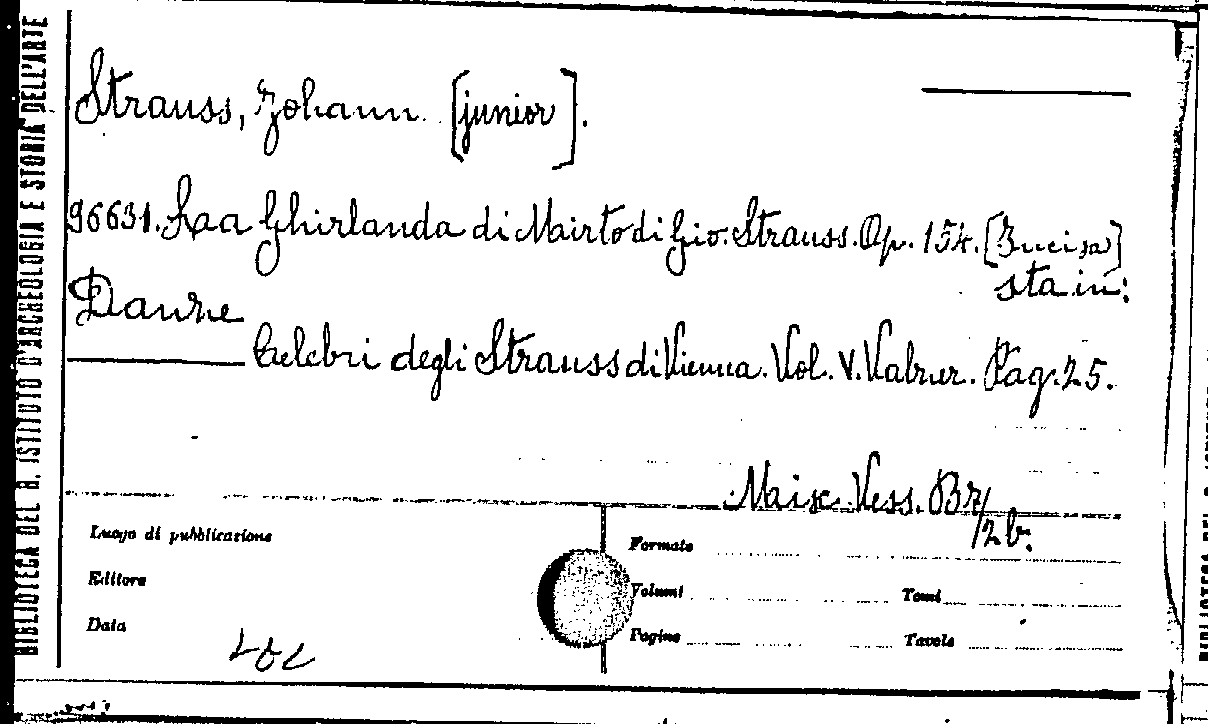 BIBLIOTECA DEL R. ISTITUTO D'ARCHEOLOGIA E STORIA DELL'ARTE
Strauss, Johann. [junior].
96631. La Ghirlanda di Mirto di Gio. Strauss. Op. 154. [Incisa]
sta in:
Danze
Celebri degli Strauss di Vienna. Vol. V. Valzer. Pag. 25.
Misc. Vess. B
2b.
Luogo di pubblicazione
Formato
Editore
Volumi
Tomi
Data
Pagine
Tavole